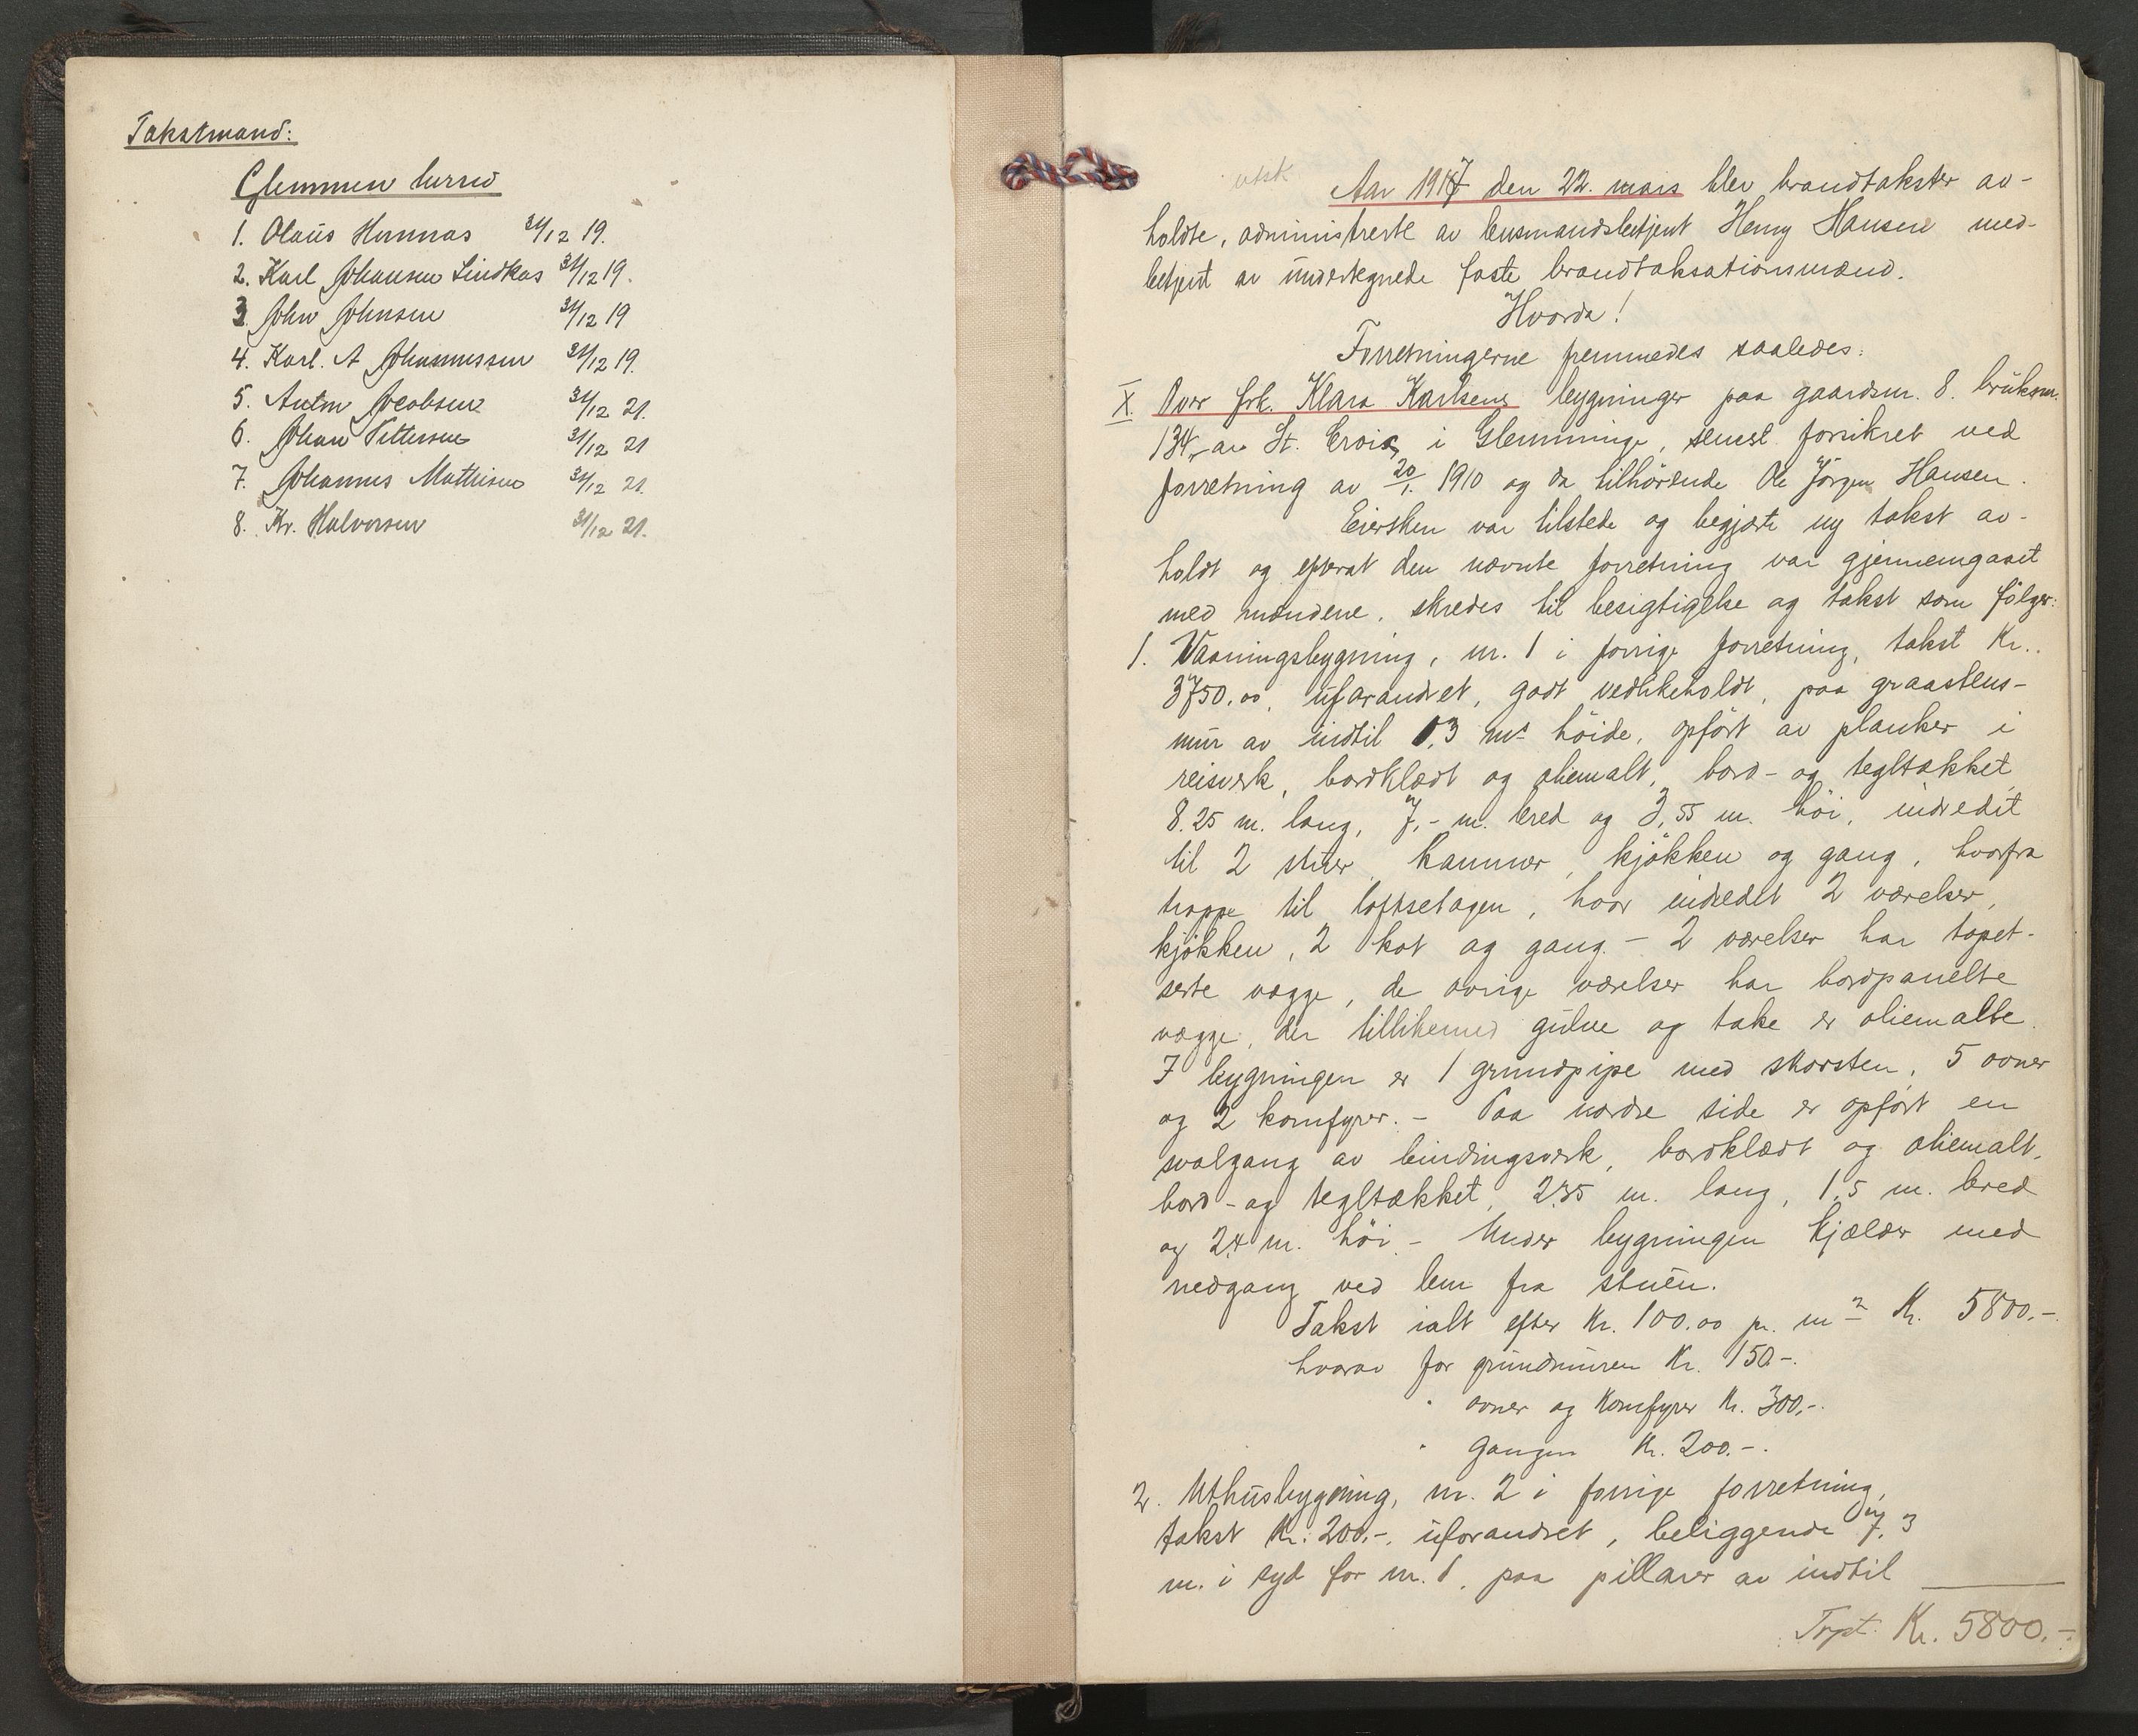 Takstmænd:
Glemmen herred
1. Olaus Hunnas 31/12 19.
2. Karl Johansen Lindkas 31/12 19.
3 John Johnsen 31/12 19
4. Karl. A Johannessen 31/12 19.
5. Anton Jacobsen 31/12 21.
6. Johan Pettersen 31/12 21
7. Johannes Mathisen 31/12 21.
8. Kr. Halvorsen 31/12 21.
utsk.
Aar 1917 den 22. mars blev brandtakster av-
holdte, administrerte av lensmandsbetjent Henry Hansen med-
betjent av undertegnede faste brandtaksationsmænd.
Hvorda!
Forretningerne fremmedes saaledes:
X. Over frk. Klara Karlsens bygninger paa gaardsnr. 8. bruksnr.
134, av St. Croix i Glemminge, senest forsikret ved
forretning av 20/1. 1910 og da tilhørende Ole Jörgen Hansen.
Eiersken var tilstede og begjærte ny takst av-
holdt og efterat den nævnte forretning var gjennemgaaet
med mændene, skredes til besigtigelse og takst som fölger:
1. Vaaningsbygning, nr. 1 i forrige forretning, takst Kr..
3750.00, uforandret, godt vedlikeholdt, paa graastens-
mur av indtil 0,3 mrs höide, opfört av planker i
reisverk, bordklædt og oliemalt, bord- og tegltækket,
8.25 m. lang, 7,- m. bred og 3,55 m. höi, indredet
til 2 stuer, kammer, kjökken og gang, hvorfra
trappe til loftsetagen, hvor indredet 2 værelser,
kjökken, 2 kot og gang. - 2 værelser har tapet-
serte vægge, de övrige værelser har bordpanelte
vægge, der tillikemed gulve og take er oliemalte.
I bygningen er 1 grundpipe med skorsten, 5 ovner
og 2 komfyrer. - Paa nordre side er opfört en
svalgang av bindingsverk, bordklædt og oliemalt,
bord- og tegltækket, 2,35 m. lang, 1,5 m. bred
og 2,4 m. höi. - Under bygningen kjælder med
nedgang ved lem fra stuen.
Takst ialt efter Kr. 100.00 pr. m2 Kr. 5800.-
hvorav for grundmuren Kr. 150.-.
" ovner og komfyrer Kr. 300,-.
" gangen Kr. 200.-.
2. Uthusbygning, nr. 2 i forrige forretning,
takst Kr: 200.-, uforandret, beliggende 7,3
m. i syd for nr. 1, paa pillarer av indtil
Trpt. Kr. 5800.-